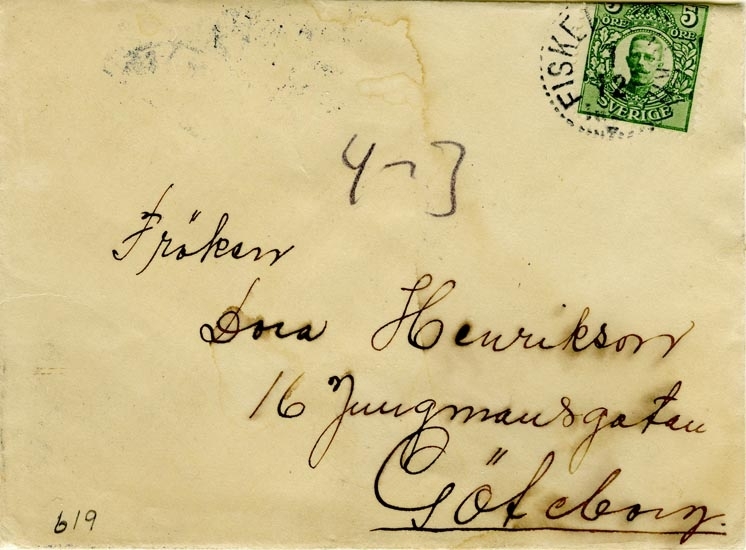 5 5
ÖRE ÖRE
FISKE
12
SVERIGE
4-3
Fröken
Dora Henrikson
16 Jungmansgatan
Göteborg.
619